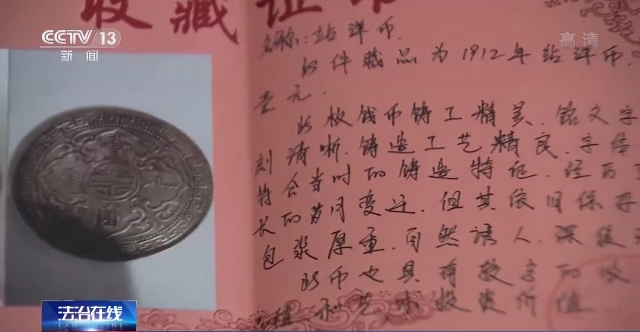 收藏证书
CCTV 13
新闻
高清
名称:站洋币.
此件藏品为1912年站洋币.
壹元.
此枚钱币铸工精美.铭文字
刻清晰.铸造工艺精良.字体
特合当时的铸造特征.经历了
长的岁月变迁.但其依旧保存
包浆厚重.自然诱人.深
此币也具有较高的收
值和艺术投资价值.
圆
法治在线